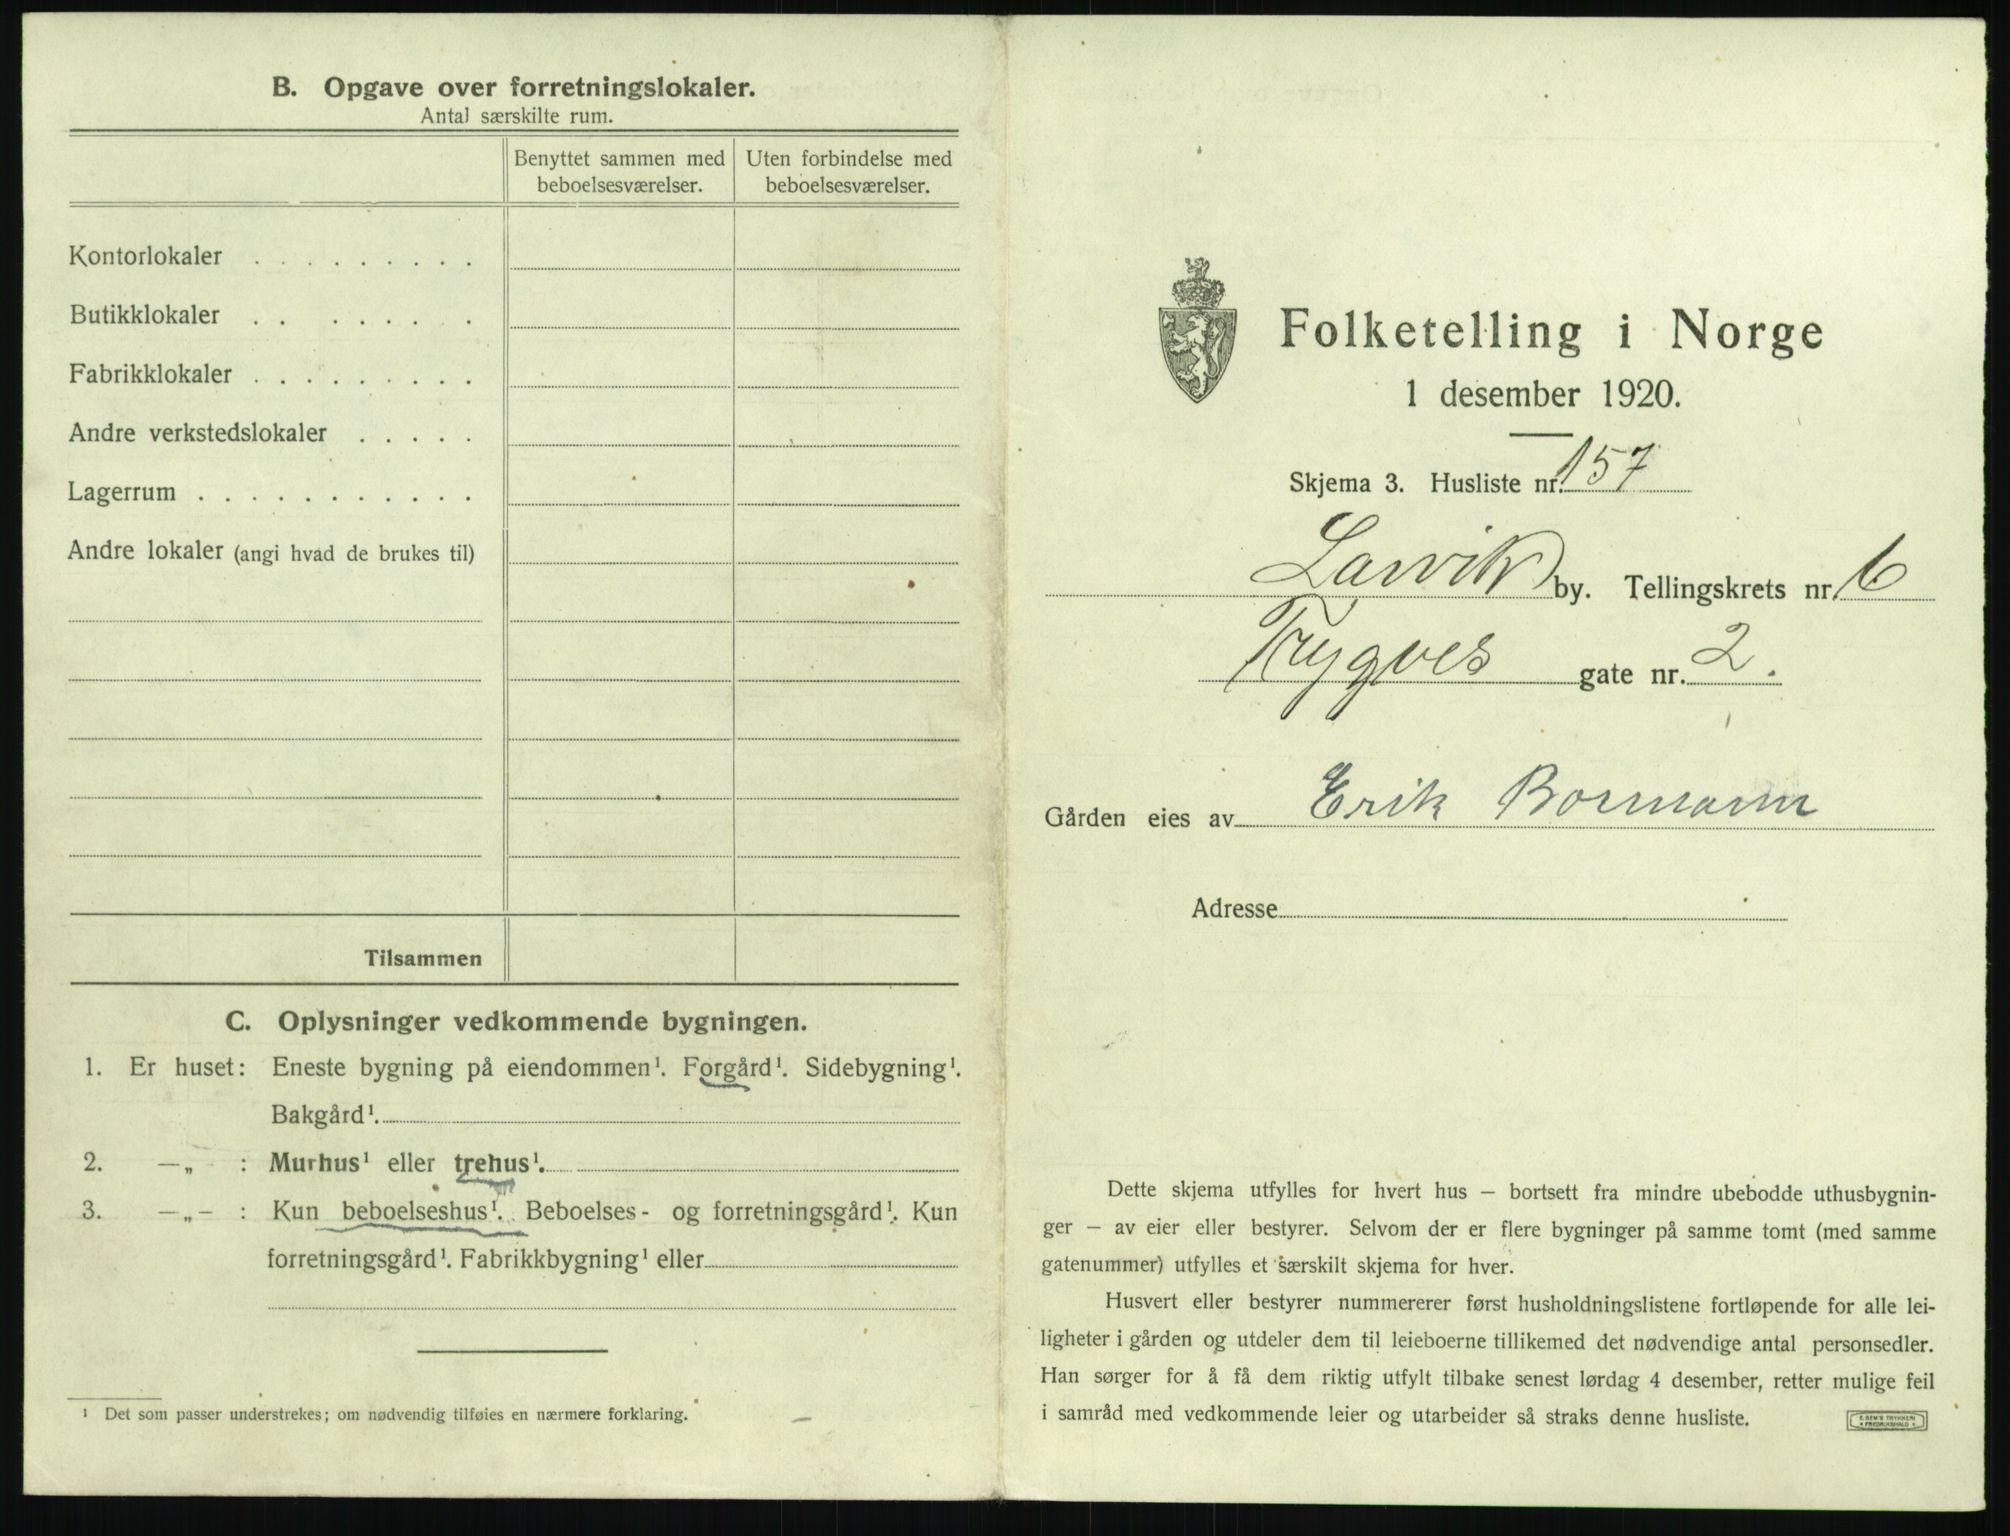 B. Opgave over forretningslokaler.
Antal særskilte rum.
Benyttet sammen med beboelsesværelser.
Uten forbindelse med beboelsesværelser.
Kontorlokaler . . . . . . . . .
Butikklokaler . . . . . . . .
Fabrikklokaler . . . . . . . . .
Andre verkstedslokaler . . . . .
Lagerrum . . . . . . . . . . .
Andre lokaler (angi hvad de brukes til)
Tilsammen
C. Oplysninger vedkommende bygningen.
1. Er huset: Eneste bygning på eiendommen¹. Forgård¹. Sidebygning¹.
Bakgård¹.
2. —„ : Murhus¹ eller trehus¹.
3. —„— : Kun beboelseshus¹. Beboelses- og forretningsgård¹. Kun
forretningsgård¹. Fabrikkbygning¹ eller
¹ Det som passer understrekes; om nødvendig tilføies en nærmere forklaring.
Folketelling i Norge
1 desember 1920.
Skjema 3. Husliste nr. 157
Larvik by. Tellingskrets nr. 6
Trygves gate nr. 2.
Gården eies av Erik Bormann
Adresse
Dette skjema utfylles for hvert hus — bortsett fra mindre ubebodde uthusbygnin-
ger — av eier eller bestyrer. Selvom der er flere bygninger på samme tomt (med samme
gatenummer) utfylles et særskilt skjema for hver.
Husvert eller bestyrer nummererer først husholdningslistene fortløpende for alle lei-
ligheter i gården og utdeler dem til leieboerne tillikemed det nødvendige antal personsedler.
Han sørger for å få dem riktig utfylt tilbake senest lørdag 4 desember, retter mulige feil
i samråd med vedkommende leier og utarbeider så straks denne husliste.
E. SEM'S TRYKKERI
FREDRIKSHALD